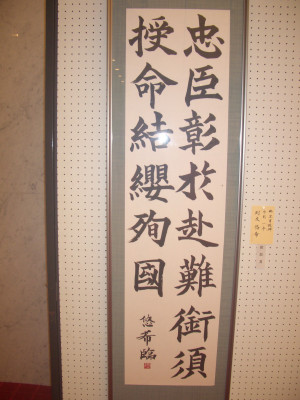 忠臣彰於赴難銜須
授命結纓殉國
悠希臨